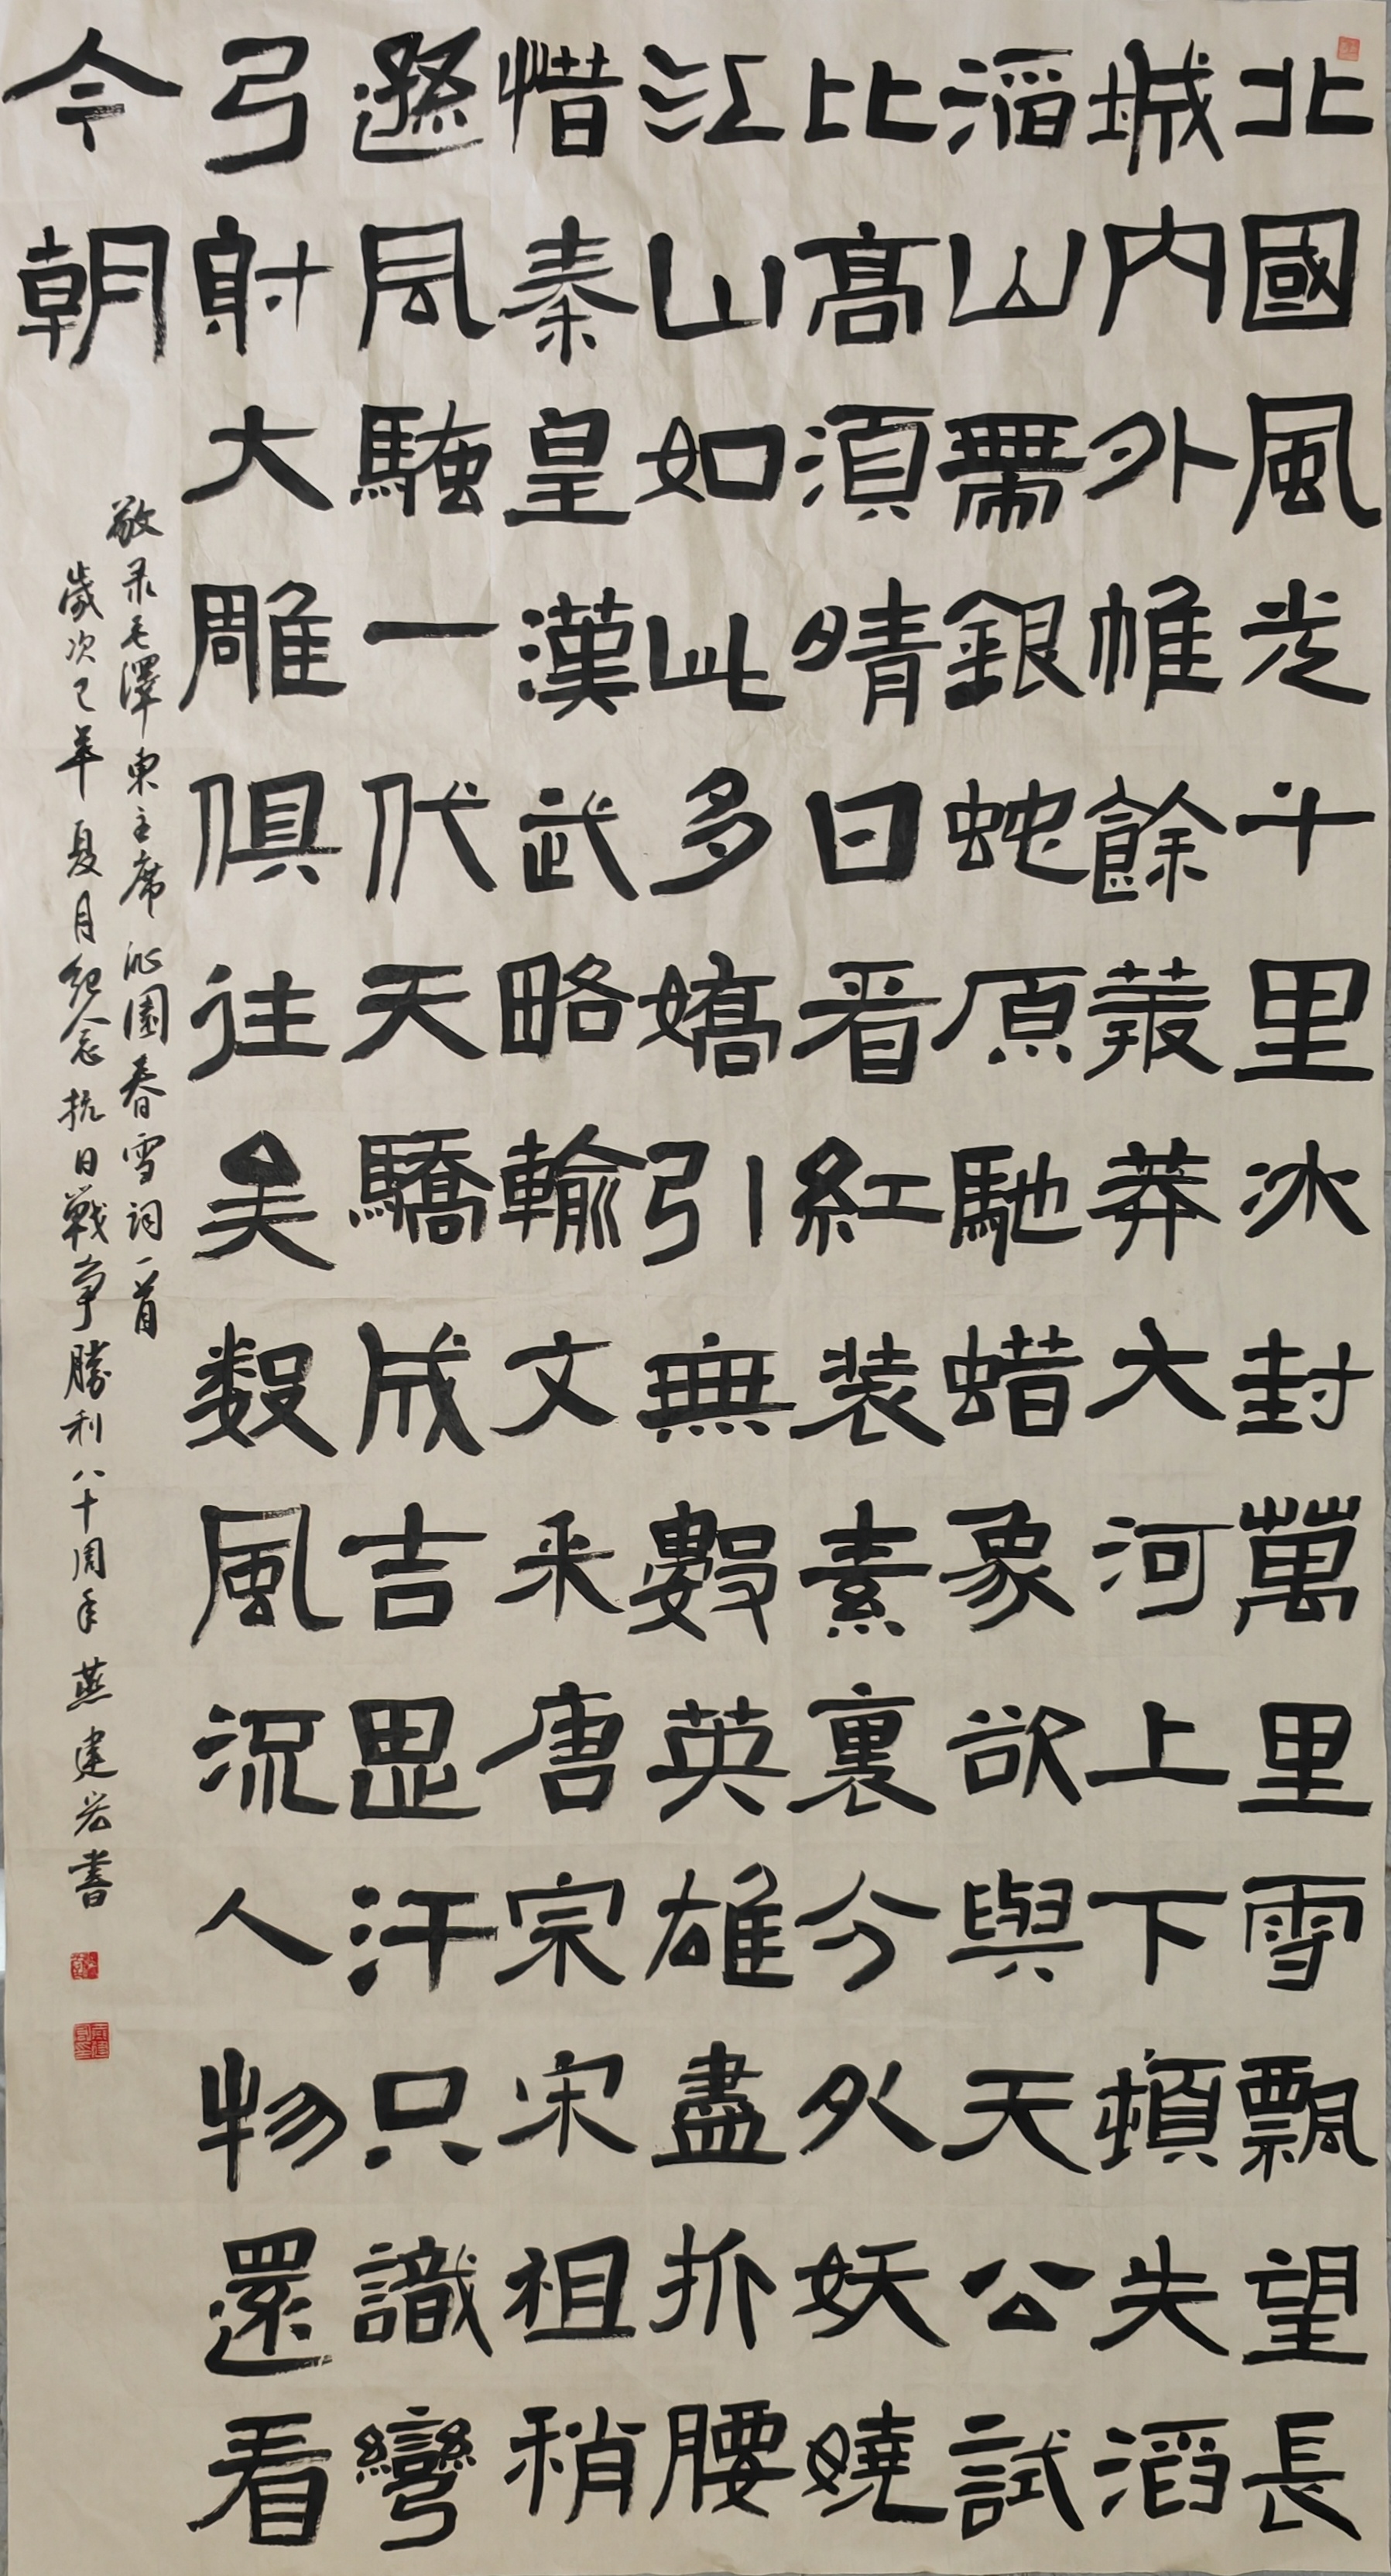 北國風光千里冰封萬里雪飄望長
城内外惟餘莽莽大河上下頓失滔
滔山舞銀蛇原馳蜡象欲與天公試
比高須晴日看紅装素裹分外妖嬈
江山如此多嬌引無數英雄盡折腰
惜秦皇漢武略輸文采唐宗宋祖稍
遜風騷一代天驕成吉思汗只識彎
弓射大雕俱往矣数風流人物還看
今朝
敬录毛澤東主席沁園春雪词一首
歲次乙年夏月紀念抗日戰争勝利八十周年燕建宏書